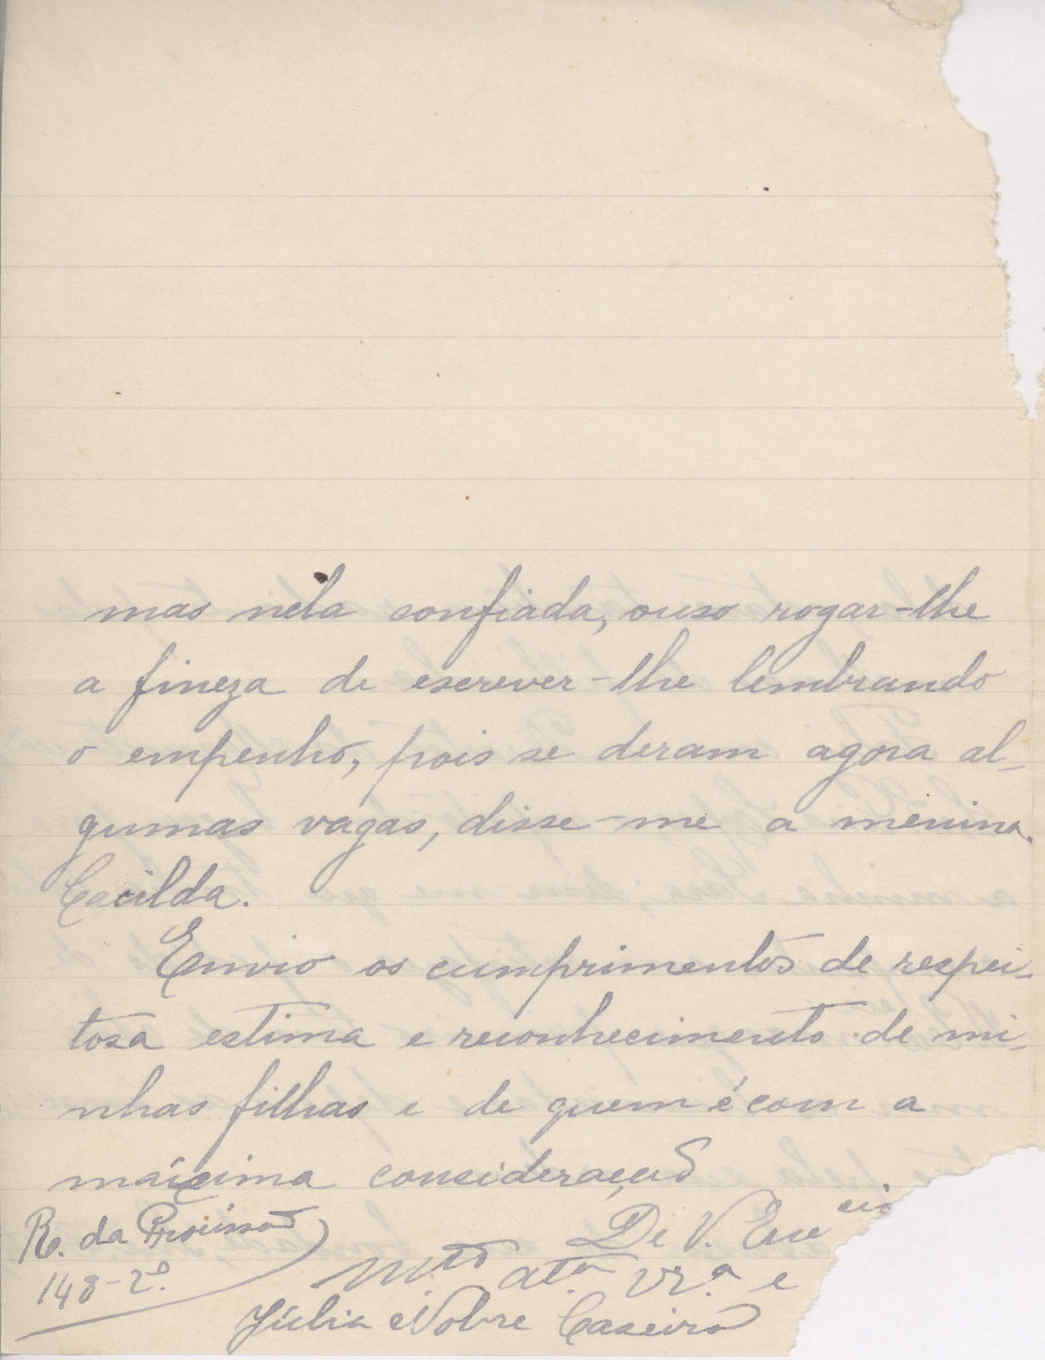 mas nela confiada, ouso rogar-lhe
a fineza de escrever-lhe lembrando
o empenho, pois se deram agora al-
gumas vagas, disse-me a menina
Cacilda.
Envio os cumprimentos de respei-
tosa estima e reconhecimento de mi-
nhas filhas e de quem é com a
maíxima consideração
De V. Exc
R. da Procissão
148-2º.
mto atª. vrª. e
Júlia Nobre Caseiro